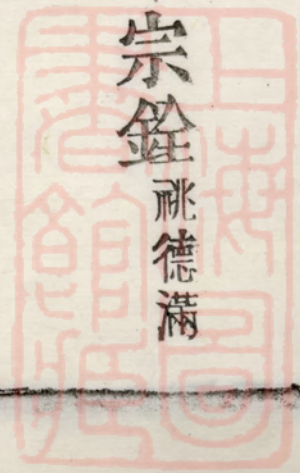 宗銓祧德滿